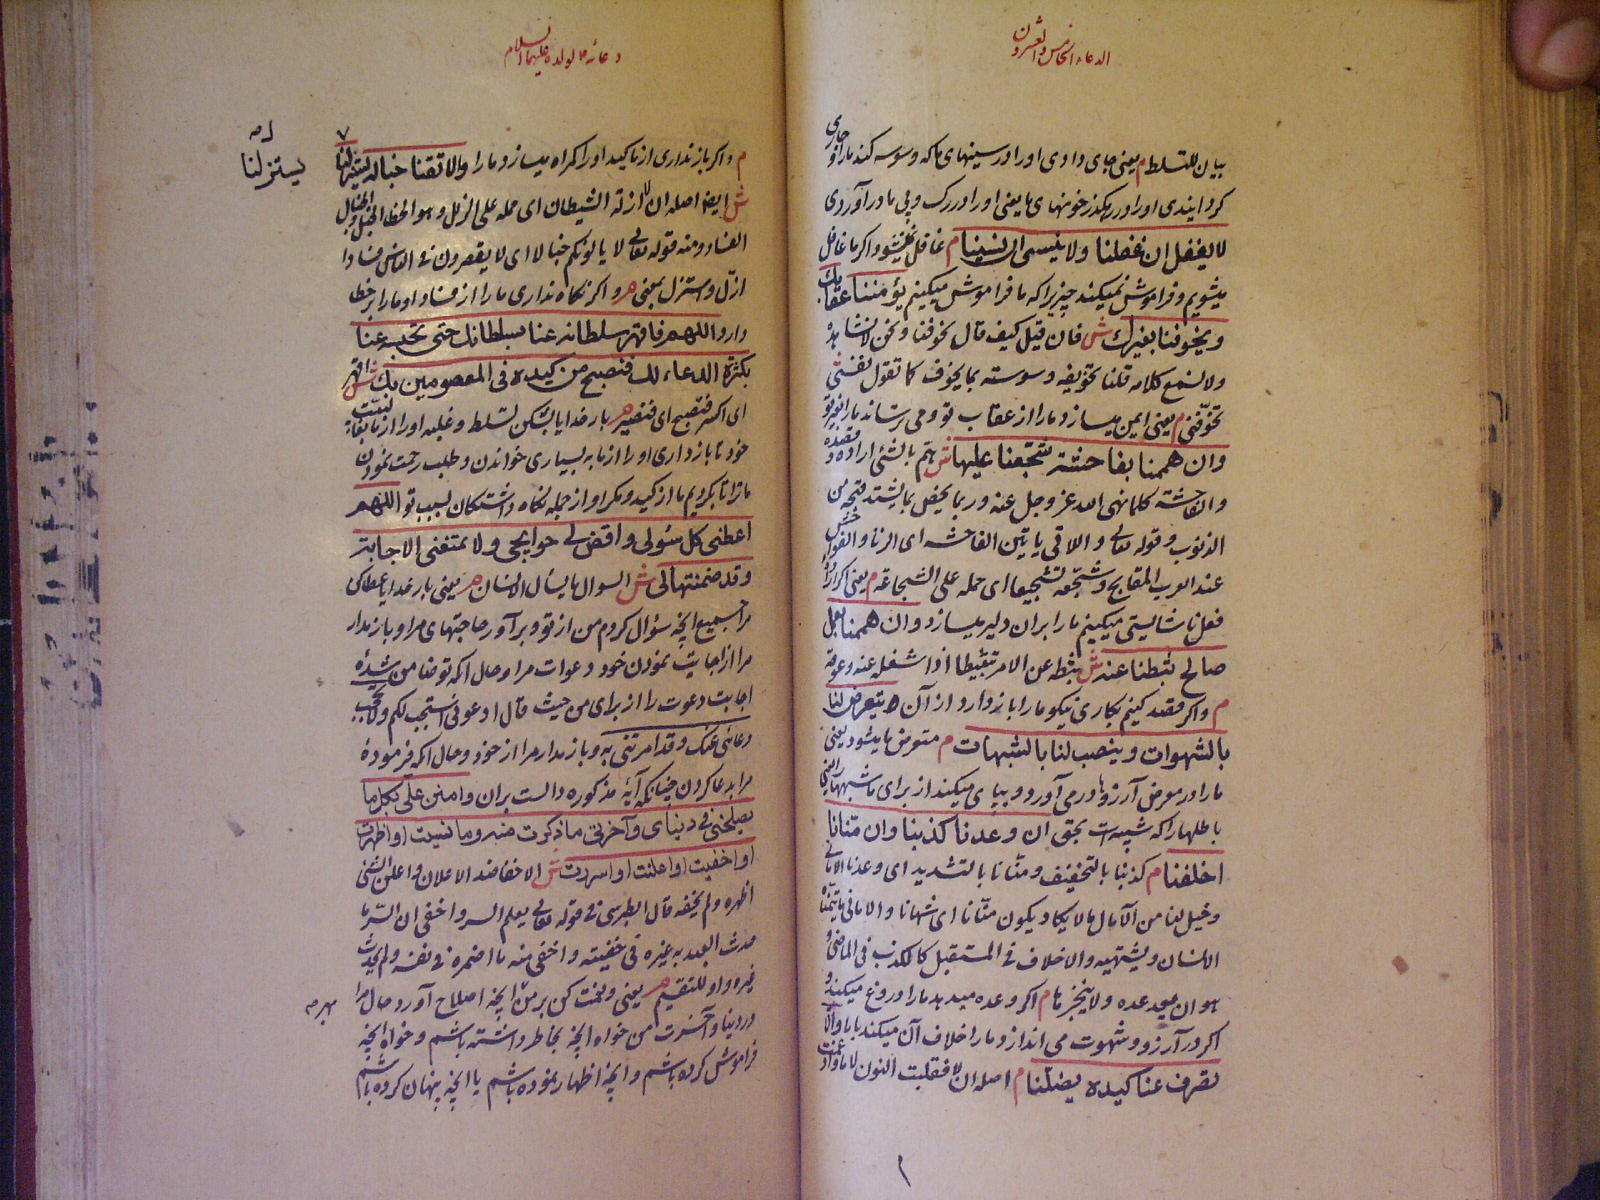 الدعاء الخامس والعشرون
بيان للتسلط م يعنى جاى دادى او را در سينهاى ما كه وسوسه كند ما را و جارى
كردانيدى او را در رهكذر خونهاى ما يعنى او را در رك و پى ما در آوردى
لا يغفل ان غفلنا ولا ينسى ان نسينا م غافل نميشود اكر ما غافل
ميشويم و فراموش نميكند چيزيرا كه ما فراموش ميكنيم يؤمننا عقابك
ويخوفنا بغيرك ش فان قيل كيف قال يخوفنا ونحن لا نشاهده
ولا نسمع كلامه قلنا تخويفه وسوسته بما يخوف كما تقول نفسى
تخوفنى م يعنى ايمن ميسازد ما را از عقاب تو و مى ترساند ما را بغير تو
وان هممنا بفاحشة شجعنا عليها ش هم بالشئ اراده و قصده
والفاحشة كلما نهى الله عز وجل عنه وربما يخص بما يشتد قبحه من
الذنوب وقوله تعالى واللاتى ياتين الفاحشه اى الزنا والفواحش
عند العرب المقابح وشجعه تشجيعا اى حمله على الشجاعة م يعنى اكر اراده
فعل ناشايستى ميكنيم ما را بران دلير ميسازد وان هممنا بعمل
صالح ثبطنا عنه ش ثبطه عن الامر تثبيطا اذا اشغله عنه وعوقه
م واكر قصد كنيم بكارى نيكو ما را باز دارد از آن يتعرض لنا
بالشهوات وينصب لنا بالشبهات م متعرض ما ميشود يعنى
ما را در معرض آرزوها در مى آورد و بپاى ميكند از براى ما شبهها را يعنى
باطلها را كه شبيه است بحق ان وعدنا كذبنا وان منانا
اخلفنا م كذبنا بالتخفيف ومنانا بالتشديد اى وعدنا الامانى
وخيل لنا من الآمال ما لا يكاد يكون منانا اى شهانا والامانى ما يتمناه
الانسان ويشتهيه والاخلاف فى المستقبل كالكذب فى الماضى و
هو ان يعد عدة ولا ينجزها م اكر وعده ميدهد ما را دروغ ميكند و
اكر در آرزو و شهوت مى اندازد ما را خلاف آن ميكند با ما والا
تصرف عنا كيده يضلنا م اصله ان لا فقلبت النون لاما وادغمت
دعائه لولده عليهما السلام
م واكر باز ندارى از ما كيد او را كمراه ميسازد ما را والا تقنا خباله يستزلنا
ش ايضا اصله ان لا ازله الشيطان اى حمله على الزلل وهو الخطا الخبل والخبال
الفساد ومنه قوله تعالى لا يالونكم خبالا اى لا يقصرون فى الناس فسادا
ازل واستزل بمعنى م واكر نكاه ندارى ما را از فساد او ما را بر خطا
دارد اللهم فاقهر سلطانه عنا بسلطانك حتى تحبسه عنا
بكثرة الدعاء لك فنصبح من كيده فى المعصومين بك ش اقهر
اى اكسر فنصبح اى فنصير م بار خدايا بشكن تسلط و غلبه او را از ما بغلبه
خود تا باز دارى او را از ما به بسيارى خواندن و طلب رحمت نمودن
ما ترا تا بكرديم ما از كيد و مكر او از جمله نكاه داشتكان بسبب تو اللهم
اعطنى كل سؤلى واقض لى حوايجى ولا تمنعنى الاجابة
وقد ضمنتها لى ش السوال ما يسأل الانسان م يعنى بار خدايا عطا كن
مرا جميع آنچه سؤال كردم من از تو و بر آور حاجتهاى مرا و باز مدار
مرا از اجابت نمودن خود دعوات مرا و حال آنكه تو ضامن شدۀ
اجابت دعوت را از براى من حيث قال ادعونى استجب لكم ولا تحجب
دعائى عنك وقد امرتنى به و باز مدار مرا از خود و حال آنكه فرمودۀ
مرا به دعا كردن چنانكه آيۀ مذكوره دالست بران وامنن على بكل ما
يصلحنى فى دنياى وآخرتى ما ذكرت منه وما نسيت او اظهرت
او اخفيت او اعلنت او اسررت ش الاخفاء ضد الاعلان واعلن الشئ
اظهره ولم يخفه قال الطبرسى فى قوله تعالى يعلم السر واخفى ان السر ما
حدث العبد به غيره فى خفيته واخفى منه ما اضمره فى نفسه ولم يحدث
غيره واو للتقسيم م يعنى و منت كن بر من آنچه اصلاح آورد حال مرا
در دنيا و آخرت من خواه آنچه بخاطر داشته باشم و خواه آنچه
فراموش كرده باشم و آنچه اظهار نموده باشم يا آنچه پنهان كرده باشم
يستزلنا